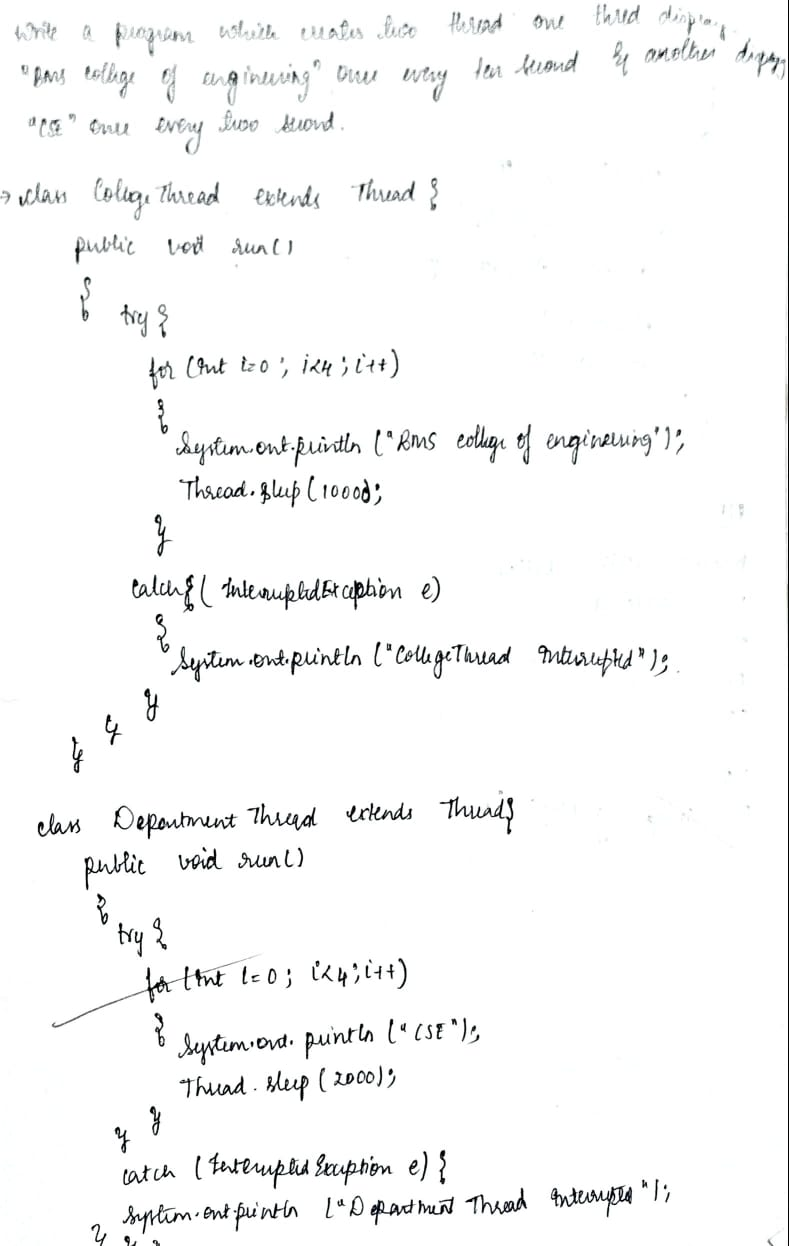 Write a program which creates two thread one thred display
"BMS college of engineering" once every ten second & another display
"CSE" once every two second.
→ class CollegeThread extends Thread {
public void run()
{ try {
for (int i=0; i<4; i++)
{
System.out.println ("BMS college of engineering");
Thread.sleep (10000);
}
catch{ ( InterruptedException e)
{
System.out.println ("CollegeThread interrupted");
}
}
}
class Department Thread extends Thread{
public void run()
{
try {
for (int i=0; i<4; i++)
{ System.out.println ("CSE");
Thread.sleep (2000);
} }
catch (Interrupted Exception e) {
System.out.println ("Department Thread interrupted");
} } }